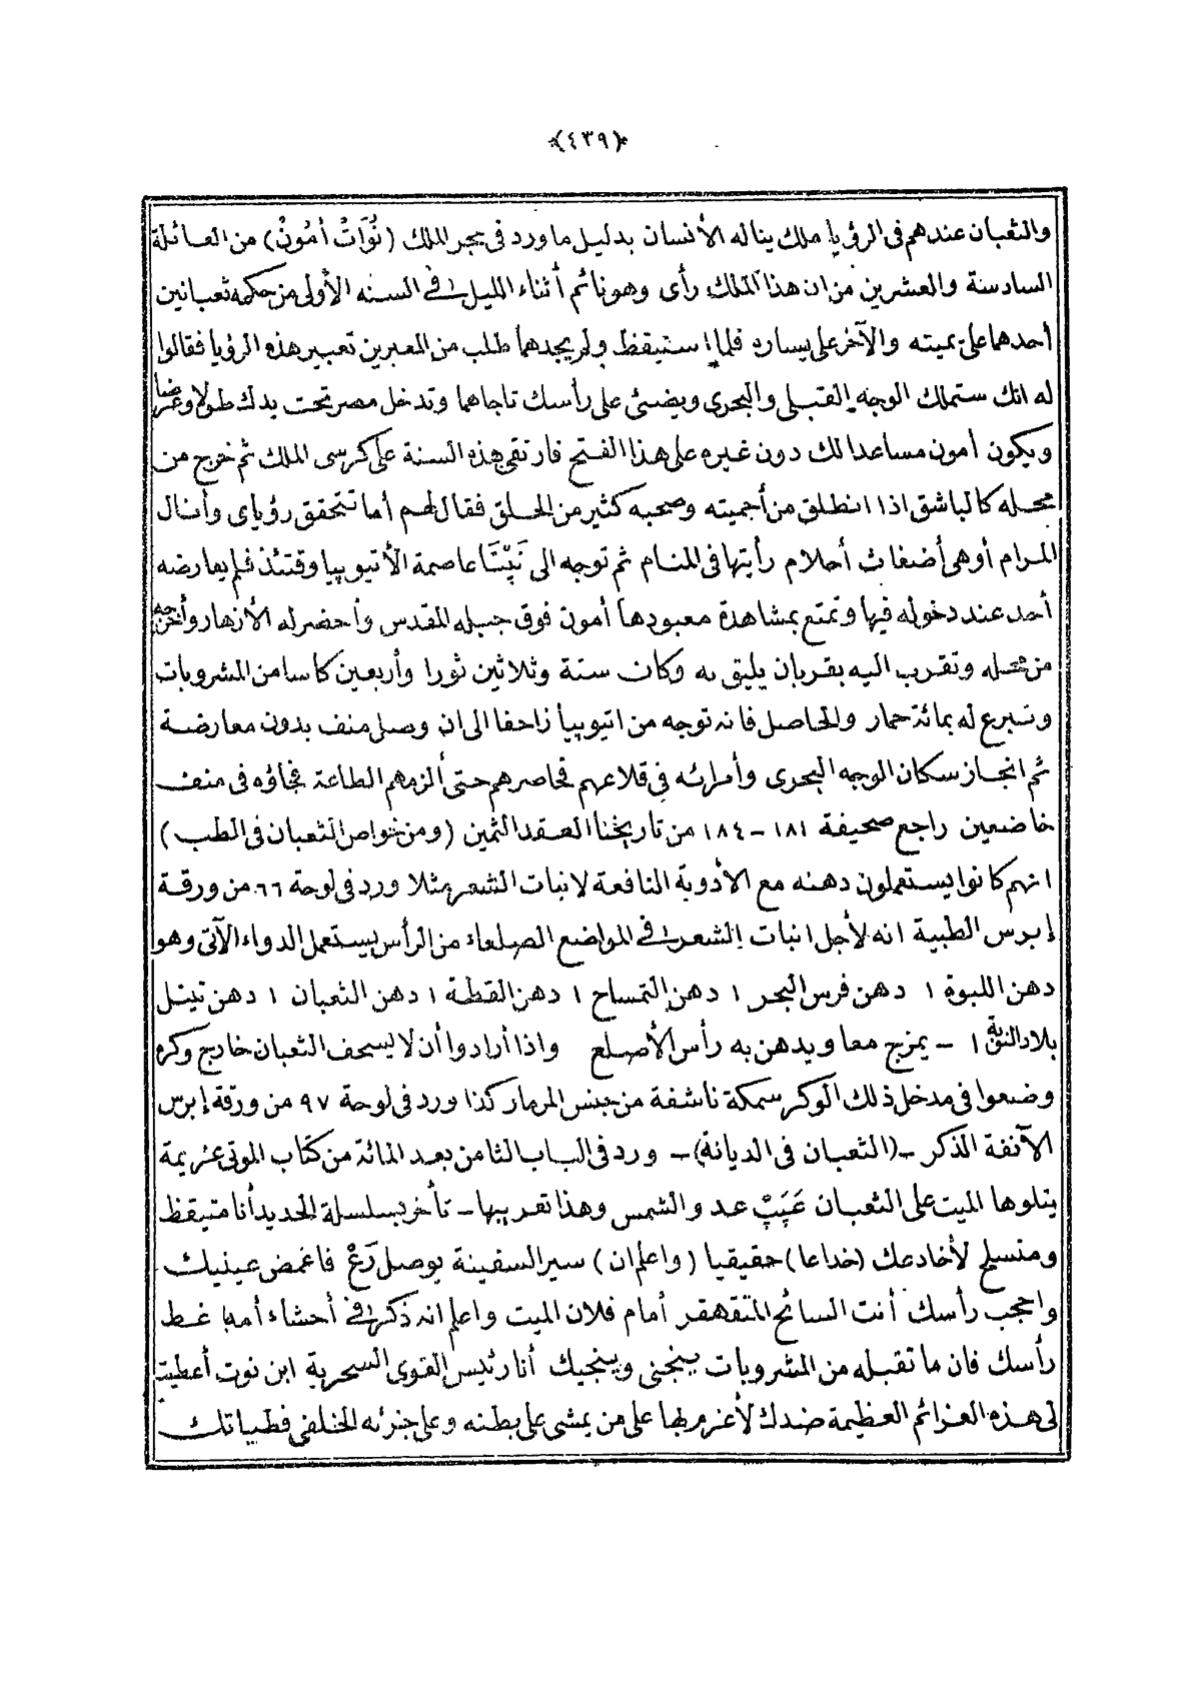 ﴿٤٣٩﴾
والثعبان عندهم فى الرؤيا ملك يناله الأنسان بدليل ما ورد فى حجر الملك (نُوَاتْ أمُونْ) من العائلة
السادسة والعشرين من ان هذا الملك رأى وهو نائم أثناء الليل فى السنه الأولى من حكمه ثعبانين
أحدهما على يميته والآخر على يساره فلما استيقظ ولم يجدهما طلب من المعبرين تعبير هذه الرؤيا فقالوا
له انك ستملك الوجه القبلى والبحرى ويضئ على رأسك تاجاهما وتدخل مصر تحت يدك طولا وعرضا
ويكون أمون مساعدا لك دون غيره على هذا الفتح فارتقى هذه السنة على كرسى الملك ثم خرج من
محله كالباشق اذا انطلق من أجميته وصحبه كثير من الخلق فقال لهم أما تتحقق رؤياى وأنال
المرام أو هى أضغاث أحلام رأيتها فى المنام ثم توجه الى نَپْتَا عاصمة الأتيوبيا وقتئذ فلم يعارضه
أحد عند دخوله فيها وتمتع بمشاهدة معبودها أمون فوق جبله المقدس وأحضر له الأزهار وأخرجه
من محله وتقرب اليه بقربان يليق به وكان ستة وثلاثين ثورا وأربعين كاسا من المشروبات
وتبرع له بمائة حمار والحاصل فانه توجه من اتيوبيا زاحفا الى ان وصل منف بدون معارضة
ثم انحاز سكان الوجه البحرى وأمرائه فى قلاعهم فحاصرهم حتى ألزمهم الطاعة فجاؤه فى منف
خاضعين راجع صحيفة ١٨١ – ١٨٤ من تاريخنا العقد الثمين (ومن خواص الثعبان فى الطب)
انهم كانوا يستعملون دهنه مع الأدوية النافعة لانبات الشعر مثلا ورد فى لوحة ٦٦ من ورقة
إبرس الطبية انه لأجل انبات الشعر فى المواضع الصلعاء من الرأس يستعمل الدواء الآتى وهو
دهن اللبوة ١ دهن فرس البحر ١ دهن التمساح ١ دهن القطة ١ دهن الثعبان ١ دهن تيتل
بلاد النوبة ١ – يمزج معا ويدهن به رأس الأصلع واذا أرادوا أن لا يسحف الثعبان خارج وكره
وضعوا فى مدخل ذلك الوكر سمكة ناشفة من جنس المرمار كذا ورد فى لوحة ٩٧ من ورقة إبرس
الآنفة الذكر –(الثعبان فى الديانة)– ورد فى الباب الثامن بعد المائة من كتاب الموتى عزيمة
يتلوها الميت على الثعبان عَپَپْ عدو الشمس وهذا تعريبها – تأخر بسلسلة الحديد أنا متيقظ
ومتسلح لأخادعك (خداعا) حقيقيا (واعلم ان) سير السفينة يوصل رَعْ فاغمض عينيك
واحجب رأسك أنت السائح المتقهقر أمام فلان الميت واعلم انه ذكر فى أحشاء أمه غط
رأسك فان ما تقبله من المشروبات ينجنى وينجيك أنا رئيس القوى السحرية ابن نوت أعطيت
لى هذه العزائم العظيمة ضدك لأعزم بها على من يمشى على بطنه وعلى جزئه الخلفى فطياتك